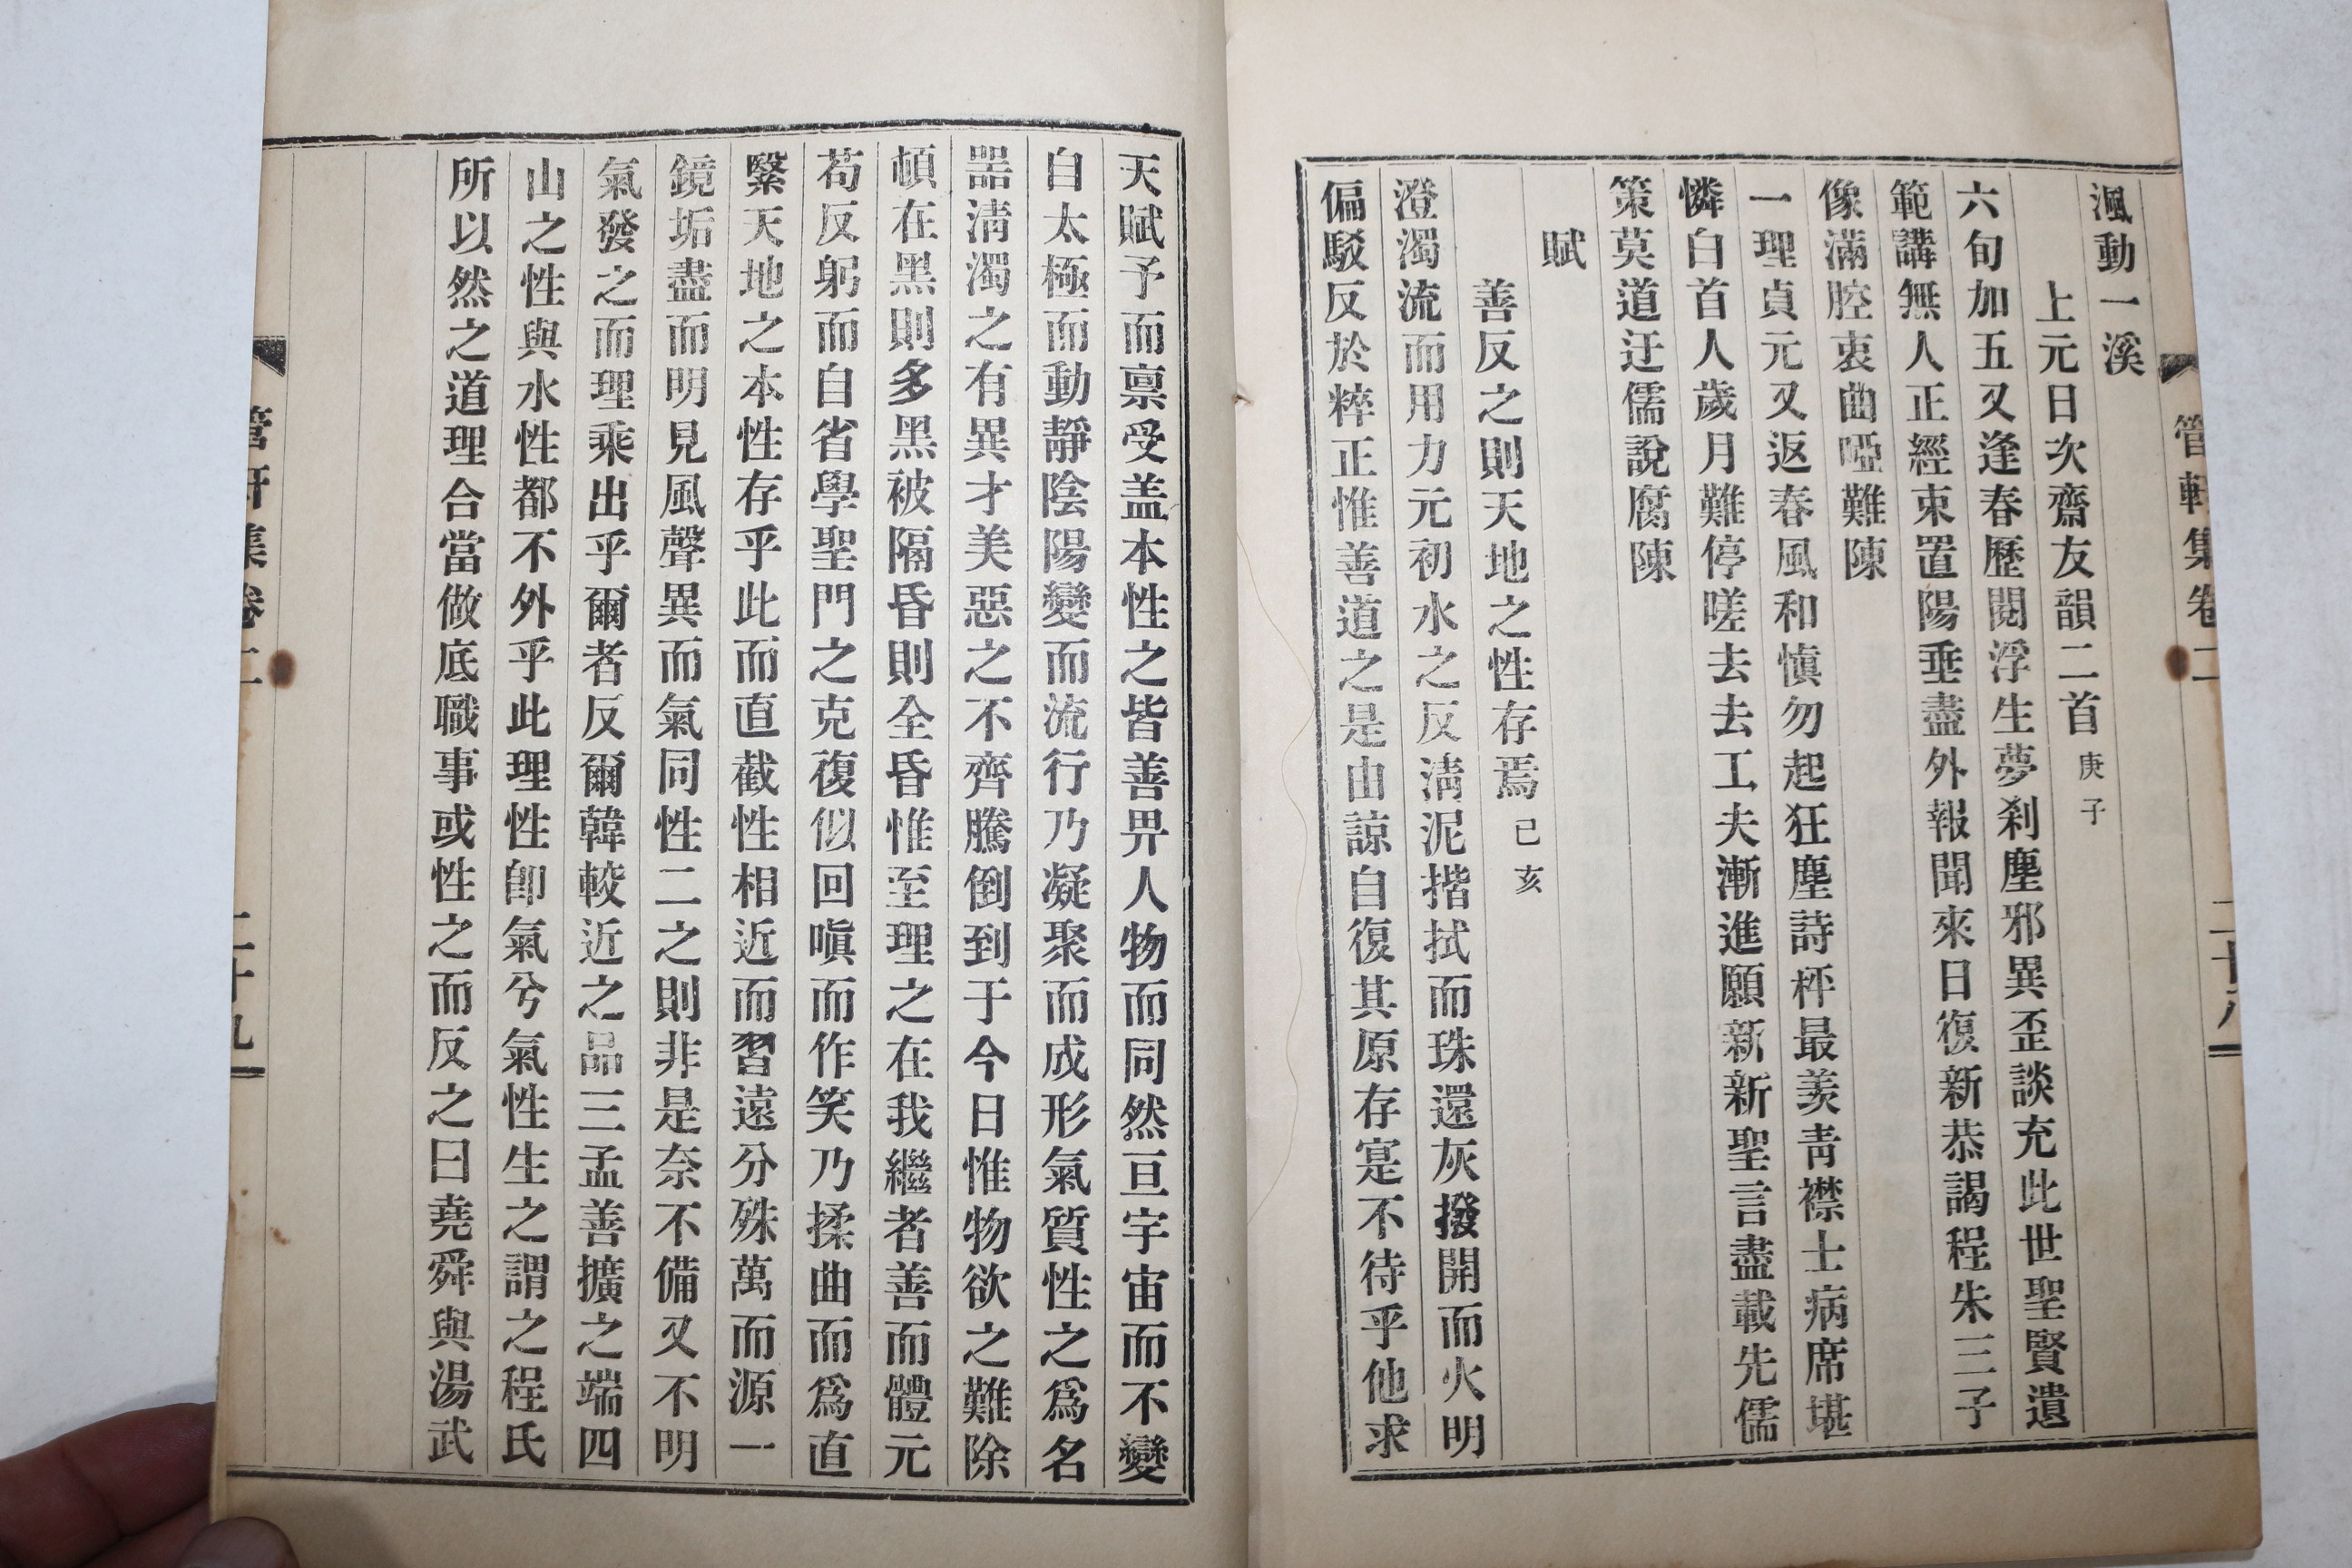 渢動一溪
上元日次齋友韻二首 庚子
六旬加五又逢春歷閱浮生夢刹塵邪異歪談充此世聖賢遺
範講無人正經束置陽垂盡外報聞來日復新恭謁程朱三子
像滿腔衷曲啞難陳
一理貞元又返春風和愼勿起狂塵詩枰最羨靑襟士病席堪
憐白首人歲月難停嗟去去工夫漸進願新新聖言盡載先儒
策莫道迂儒說腐陳
賦
善反之則天地之性存焉 己亥
澄濁流而用力元初水之反淸泥揩拭而珠還灰撥開而火明
偏駁反於粹正惟善道之是由諒自復其原存寔不待乎他求
管軒集卷二
天賦予而禀受盖本性之皆善畀人物而同然亘宇宙而不變
自太極而動靜陰陽變而流行乃凝聚而成形氣質性之爲名
噐淸濁之有異才美惡之不齊騰倒到于今日惟物欲之難除
頓在黑則多黑被隔昏則全昏惟至理之在我繼者善而體元
苟反躬而自省學聖門之克復似回嗔而作笑乃揉曲而爲直
緊天地之本性存乎此而直截性相近而習遠分殊萬而源一
鏡垢盡而明見風聲異而氣同性二之則非是奈不備又不明
氣發之而理乘出乎爾者反爾韓較近之品三孟善擴之端四
山之性與水性都不外乎此理性卽氣兮氣性生之謂之程氏
所以然之道理合當做底職事或性之而反之曰堯舜與湯武
管軒集卷二
二十九